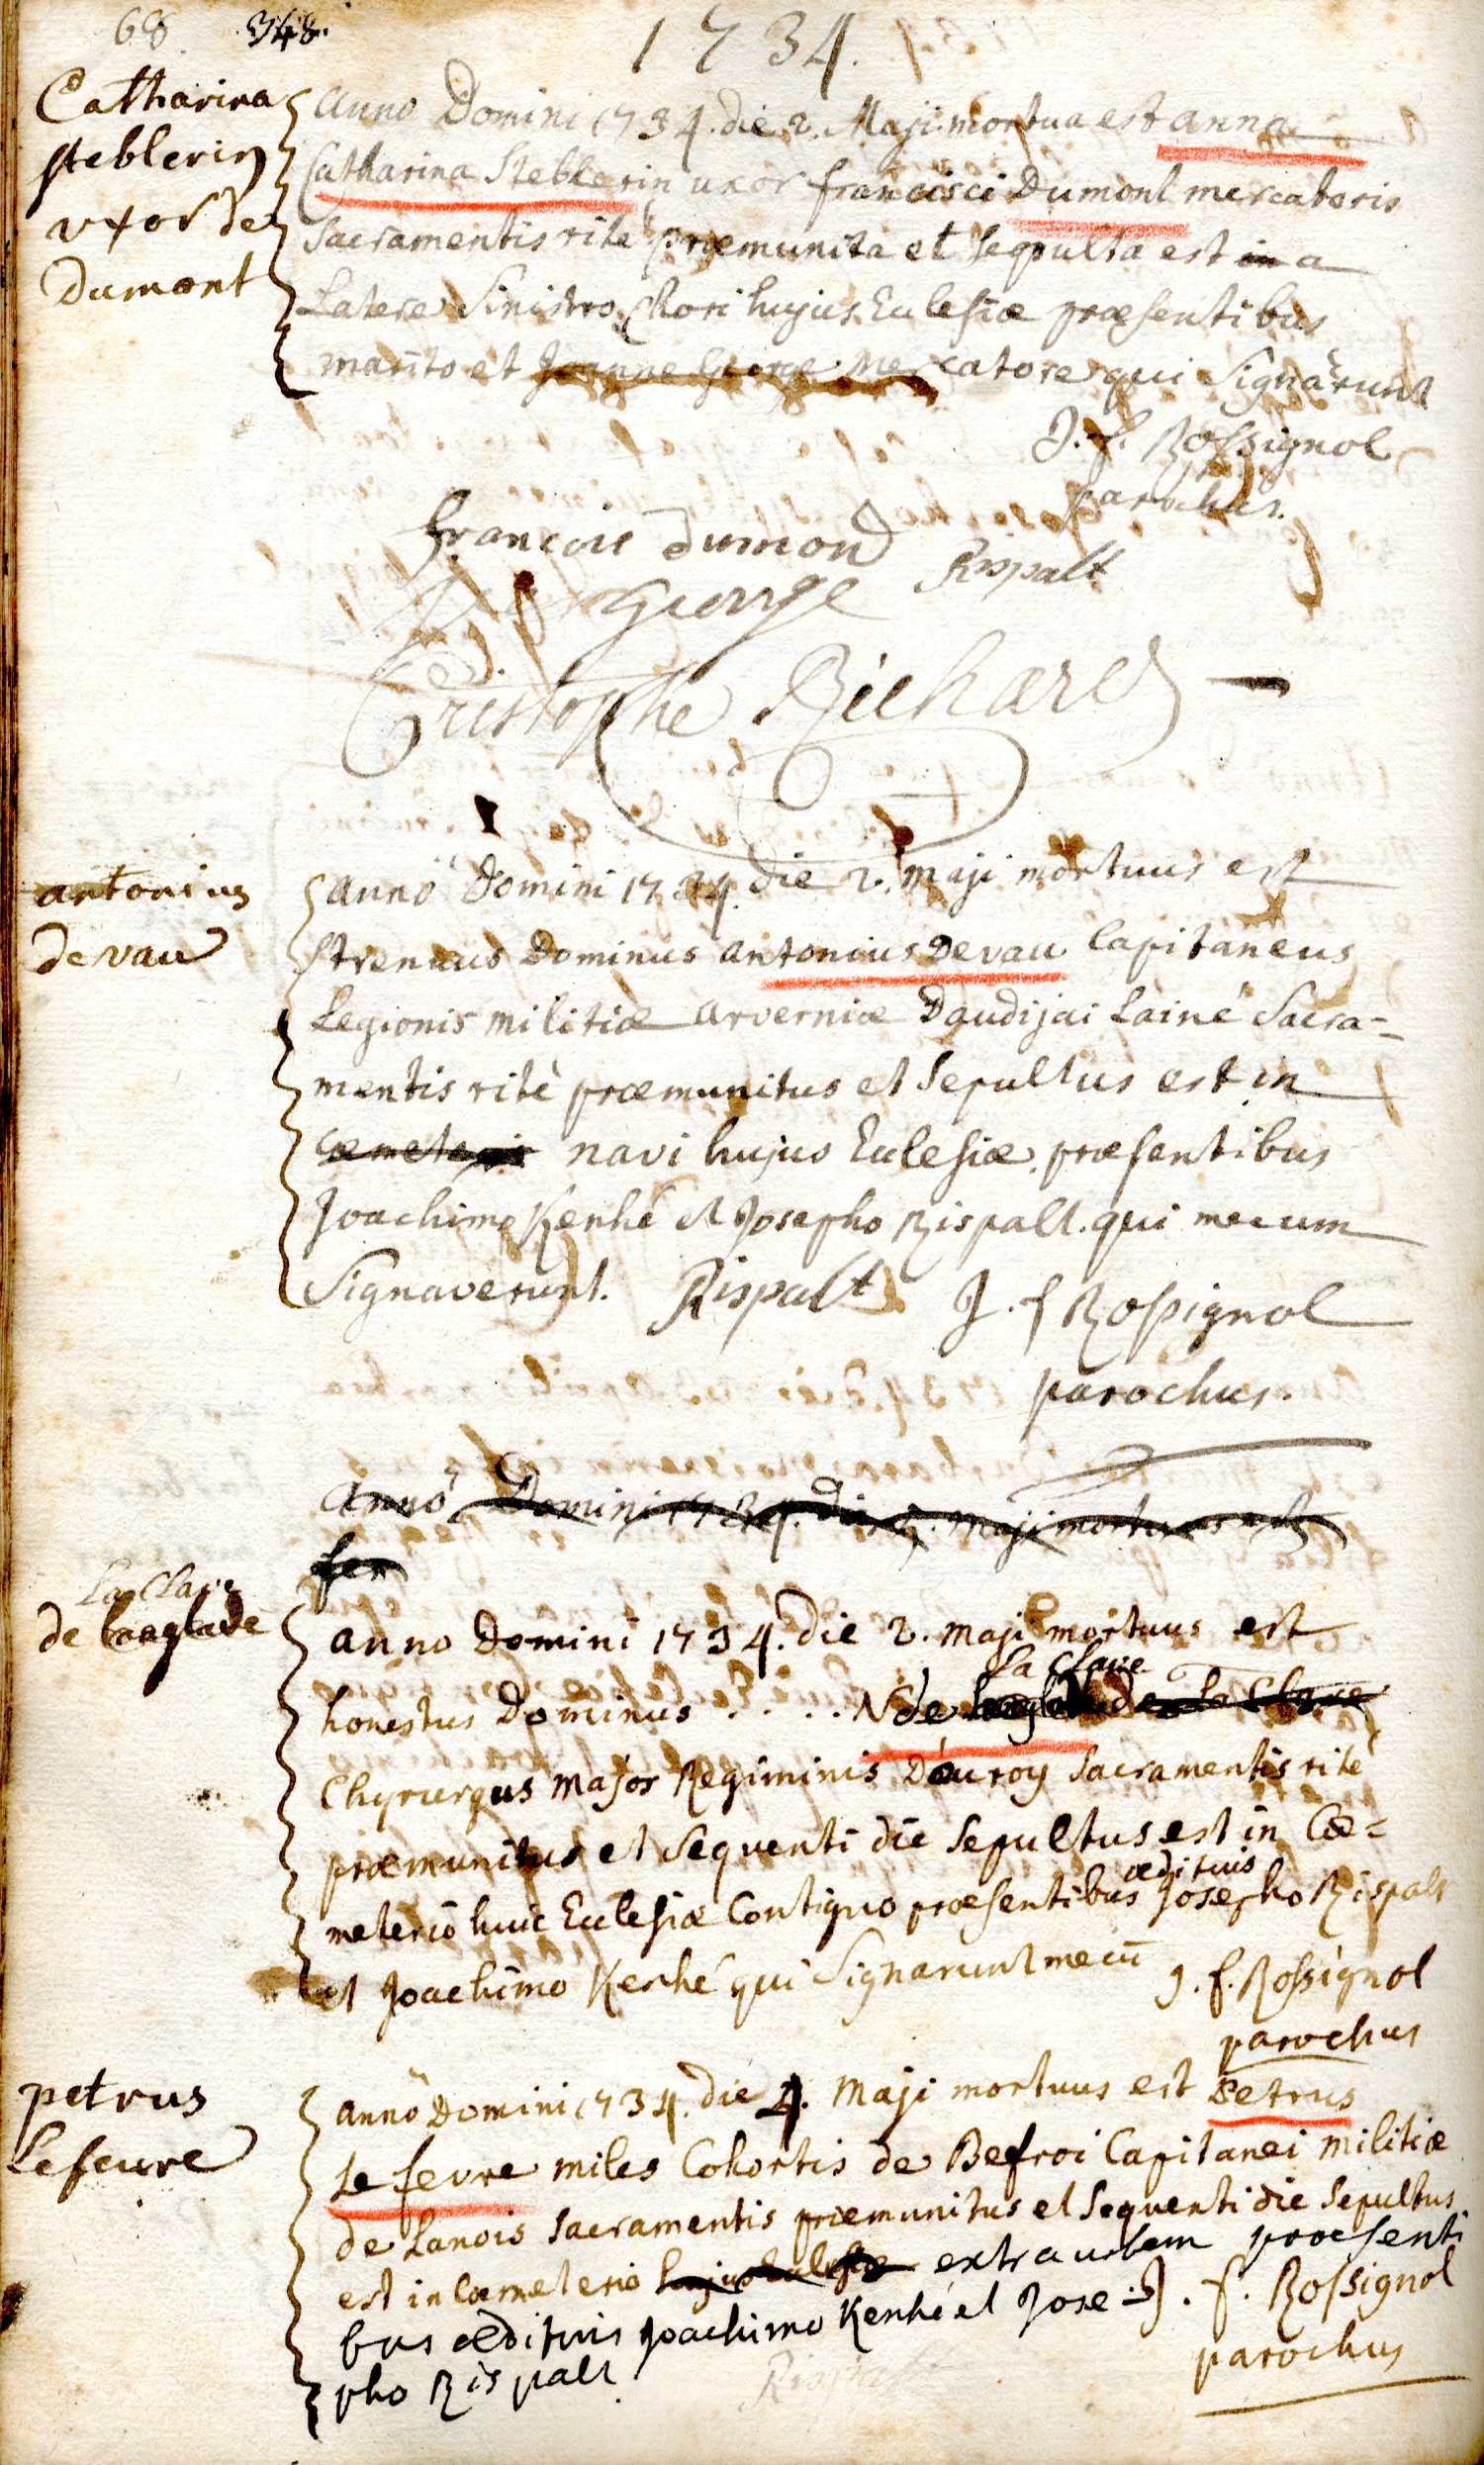 68. 348.
1734.
Catharina
steblerin
uxor de
dumont
Anno Domini 1734. die 2. Maji mortua est anna
Catharina Steblerin uxor francisci Dumont mercatoris
Sacramentis rite præmunita et sepulta est in a
Latere Sinistro Chori hujus Eclesiæ præsentibus
marito et Joanne George Mercatore qui Signarunt
J. f. Rossignol
parochus.
francois dumond
Rispalt
George
Cristophe Richard
antonius
devau
Anno Domini 1734. die 2. maji mortuus est
Strenuus Dominus antonius Devau Capitaneus
Legionis militiæ arverniæ Daudijai Lainé Sacra=
mentis ritè præmunitus et Sepultus est in
cœmeterio navi hujus Eclesiæ præsentibus
Joachimo Kenhé et Josepho Rispalt. qui mecum
Signaverunt. Rispalt J. f Rossignol
parochus.
Anno Domini 1734. die 2. maji mortuus est
La Claire
de Langlade
anno Domini 1734. die 2. maji mortuus est
La Claire
honestus Dominus . . . . N de
Chyrurgus major Regiminis Dauroy Sacramentis ritè
præmunitus et Sequenti die Sepultus est in Cœ=
ædituis
meterio huic Eclesiæ Contiguo præsentibus Josepho Rispalt
et Joachimo Kenhé qui Signarunt mecū J. f. Rossignol
parochus
petrus
Lefeure
anno Domini 1734. die 4. Maji mortuus est Petrus
Le fevre miles Cohortis de Befroi Capitanei militiæ
de Lanois Sacramentis præmunitus et Sequenti die Sepultus
est in Cœmeterio hujus Eclesiæ extra urbem præsenti
bus ædituis Joachimo Kenhé et Jose= J. f. Rossignol
pho Rispalt parochus
Rispalt